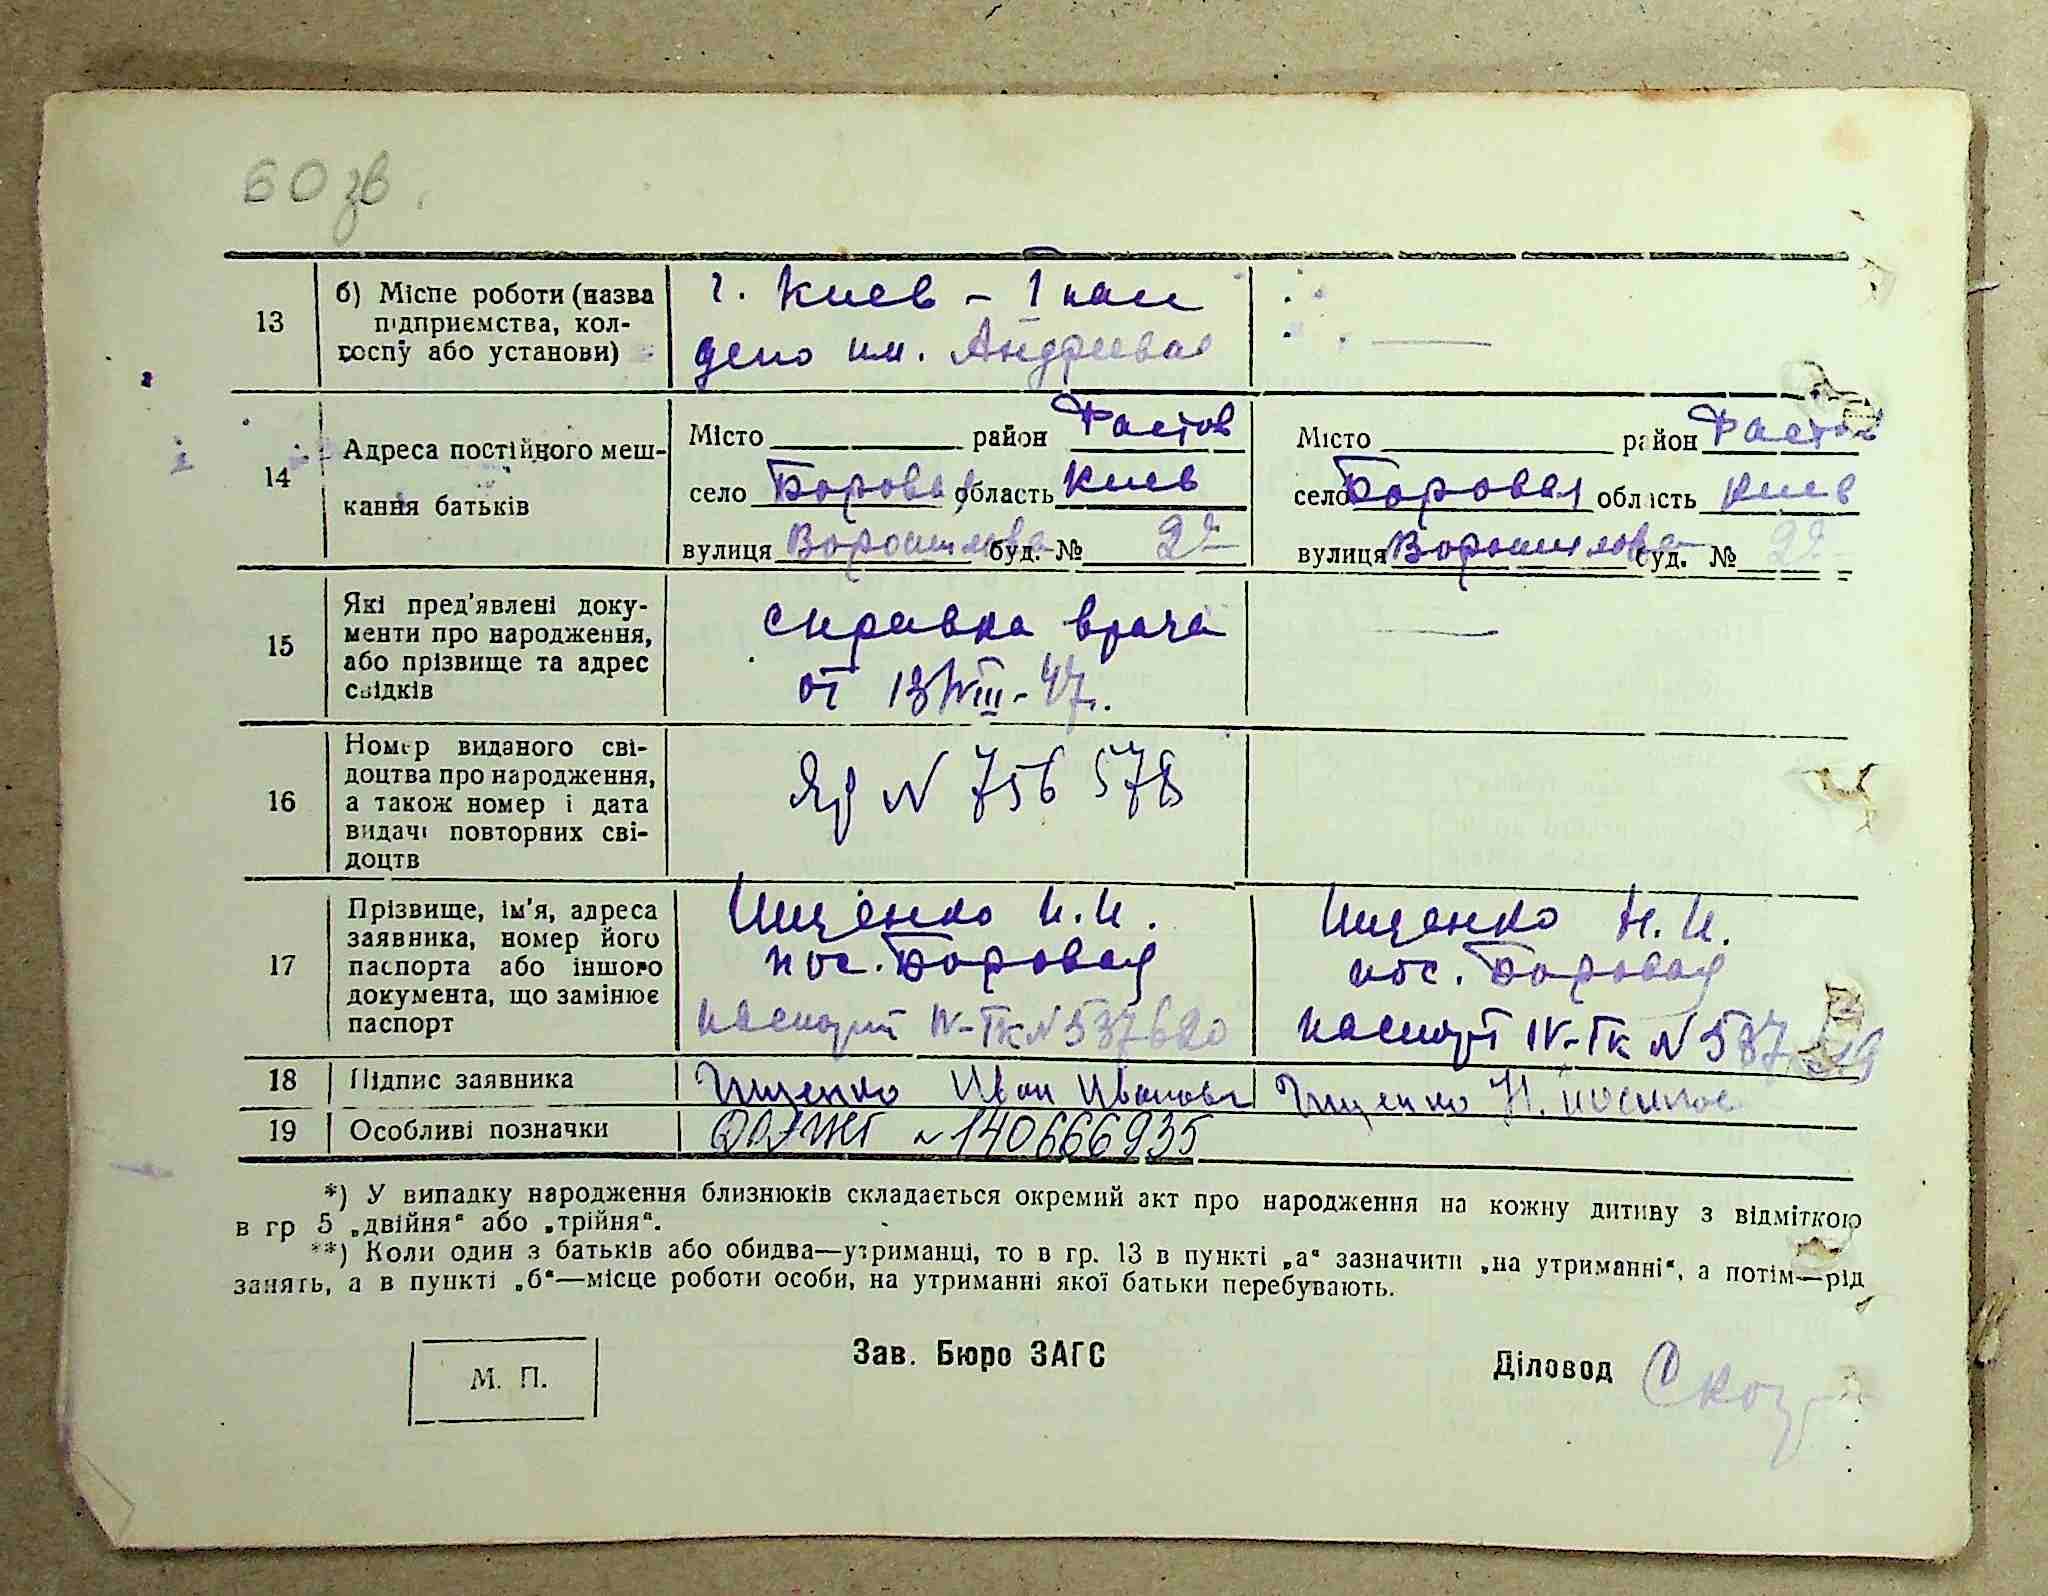 60 зв.
13
б) Місце роботи (назва
підприємства, кол-
госпу або установи)
г. Киев – I пас
депо им. Андреева
14
Адреса постійного меш-
кання батьків
Місто район Фастов
село Боровая область Киев
вулиця Ворошилова буд. №
Місто район Фастов
село Боровая область Киев
вулиця Ворошилова буд. №
15
Які пред'явлені доку-
менти про народження,
або прізвище та адрес
свідків
справка врача
от 13/VIII-47.
16
Номер виданого сві-
доцтва про народження,
а також номер і дата
видачі повторних сві-
доцтв
N 756578
17
Прізвище, ім'я, адреса
заявника, номер його
паспорта або іншого
документа, що замінює
паспорт
Ищенко И. И.
пос. Боровая
паспорт IV-ТК N 537620
Ищенко Н. И.
пос. Боровая
паспорт IV-ТК N 537
18
Підпис заявника
Ищенко Иван Иванови
Ищенко Н.
19
Особливі позначки
N 140666935
*) У випадку народження близнюків складається окремий акт про народження на кожну дитину з відміткою
в гр 5 „двійня“ або „трійня“.
**) Коли один з батьків або обидва—утриманці, то в гр. 13 в пункті „а“ зазначити „на утриманні“, а потім—рід
занять, а в пункті „б“—місце роботи особи, на утриманні якої батьки перебувають.
М. П.
Зав. Бюро ЗАГС
Діловод